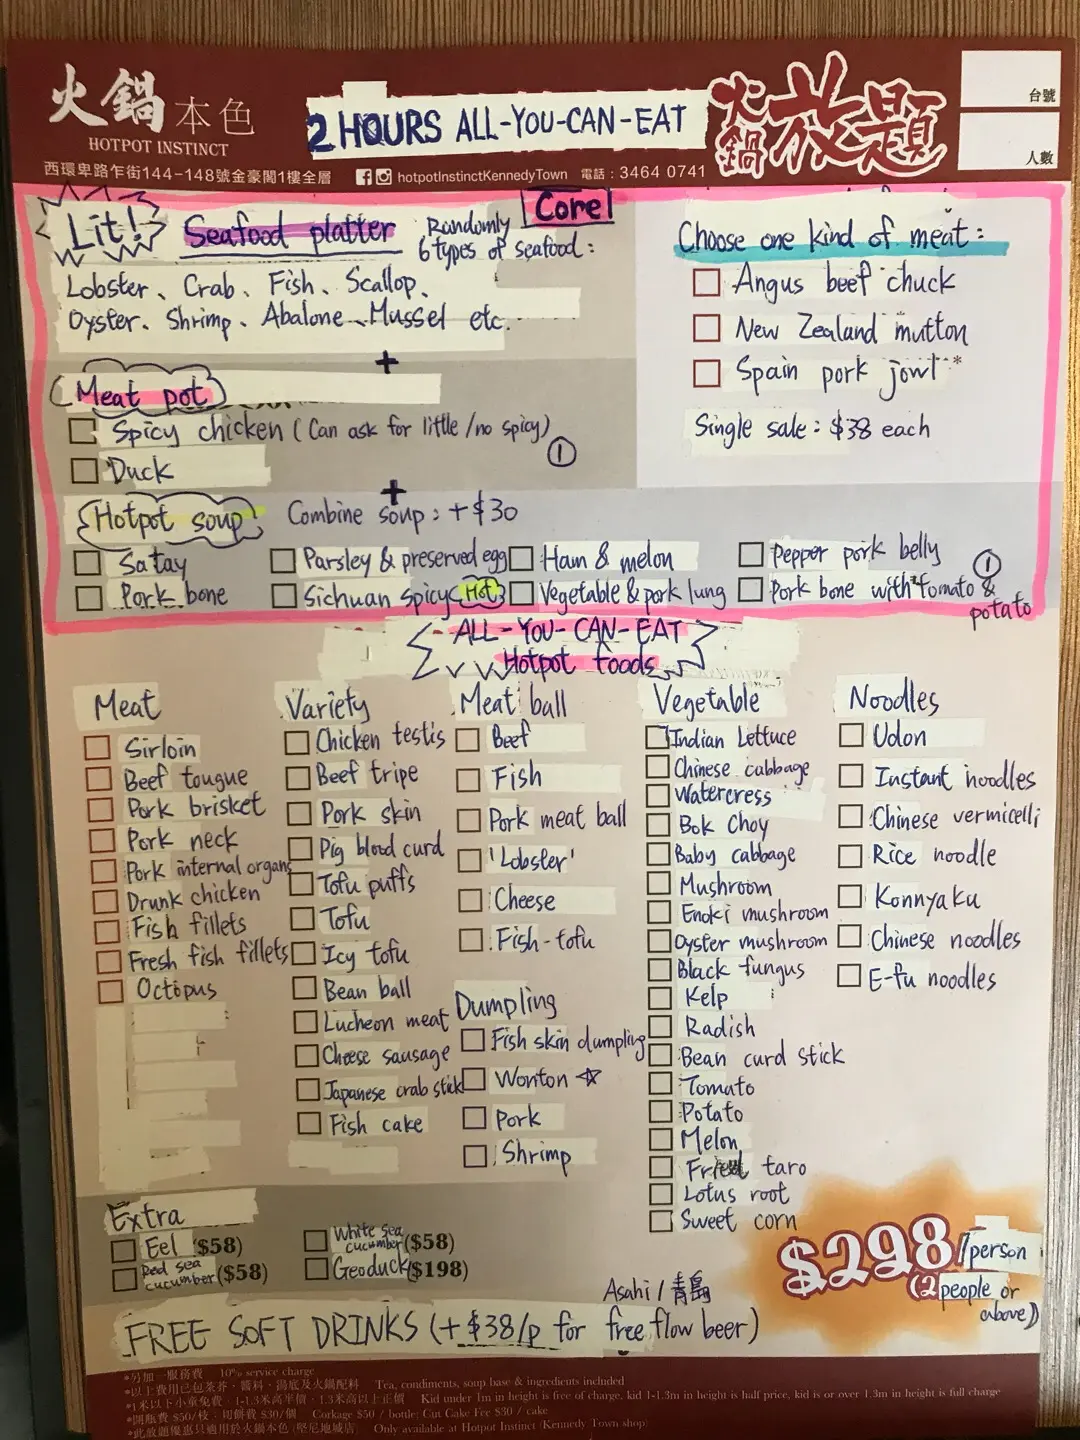 火鍋本色
HOTPOT INSTINCT
2 HOURS ALL-YOU-CAN-EAT
火鍋放題
台號
人數
西環卑路乍街144-148號金豪閣1樓全層
hotpotInstinctKennedyTown 電話：3464 0741
Lit!
Seafood platter
Randomly
6 types of seafood:
Core
Lobster、Crab、Fish、Scallop、
Oyster、Shrimp、Abalone、Mussel etc.
Choose one kind of meat:
Angus beef chuck
New Zealand mutton
Spain pork jowl*
Single sale: $38 each
+
Meat pot
Spicy chicken (Can ask for little/no spicy)
Duck
①
+
Hotpot soup
Combine soup: +$30
Satay
Parsley & preserved egg
Ham & melon
Pepper pork belly
①
Pork bone
Sichuan spicy Hot
Vegetable & pork lung
Pork bone with tomato &
potato
ALL-YOU-CAN-EAT
Hotpot foods
Meat
Sirloin
Beef tougue
Pork brisket
Pork neck
Pork internal organs
Drunk chicken
Fish fillets
Fresh fish fillets
Octopus
Variety
Chicken testis
Beef tripe
Pork skin
Pig blood curd
Tofu puffs
Tofu
Icy tofu
Bean ball
Lucheon meat
Cheese sausage
Japanese crab stick
Fish cake
Meat ball
Beef
Fish
Pork meat ball
'Lobster'
Cheese
Fish-tofu
Dumpling
Fish skin dumpling
Wonton ☆
Pork
Shrimp
Vegetable
Indian Lettuce
Chinese cabbage
Watercress
Bok Choy
Baby cabbage
Mushroom
Enoki mushroom
Oyster mushroom
Black fungus
Kelp
Radish
Bean curd stick
Tomato
Potato
Melon
Fried taro
Lotus root
Sweet corn
Noodles
Udon
Instant noodles
Chinese vermicelli
Rice noodle
Konnyaku
Chinese noodles
E-fu noodles
Extra
Eel ($58)
White sea
cucumber ($58)
Red sea
cucumber ($58)
Geoduck ($198)
$298/person
(2 people or
above)
Asahi/青島
FREE SOFT DRINKS (+$38/p for free flow beer)
*另加一服務費 10% service charge
*以上費用已包茶芥、醬料、湯底及火鍋配料 Tea, condiments, soup base & ingredients included
*1米以下小童免費，1-1.3米高半價，1.3米高以上正價 Kid under 1m in height is free of charge, kid 1-1.3m in height is half price, kid is or over 1.3m in height is full charge
*開瓶費 $50/枝；切餅費 $30/個 Corkage $50 / bottle; Cut Cake Fee $30 / cake
*此放題優惠只適用於火鍋本色 (堅尼地城店) Only available at Hotpot Instinct (Kennedy Town shop)